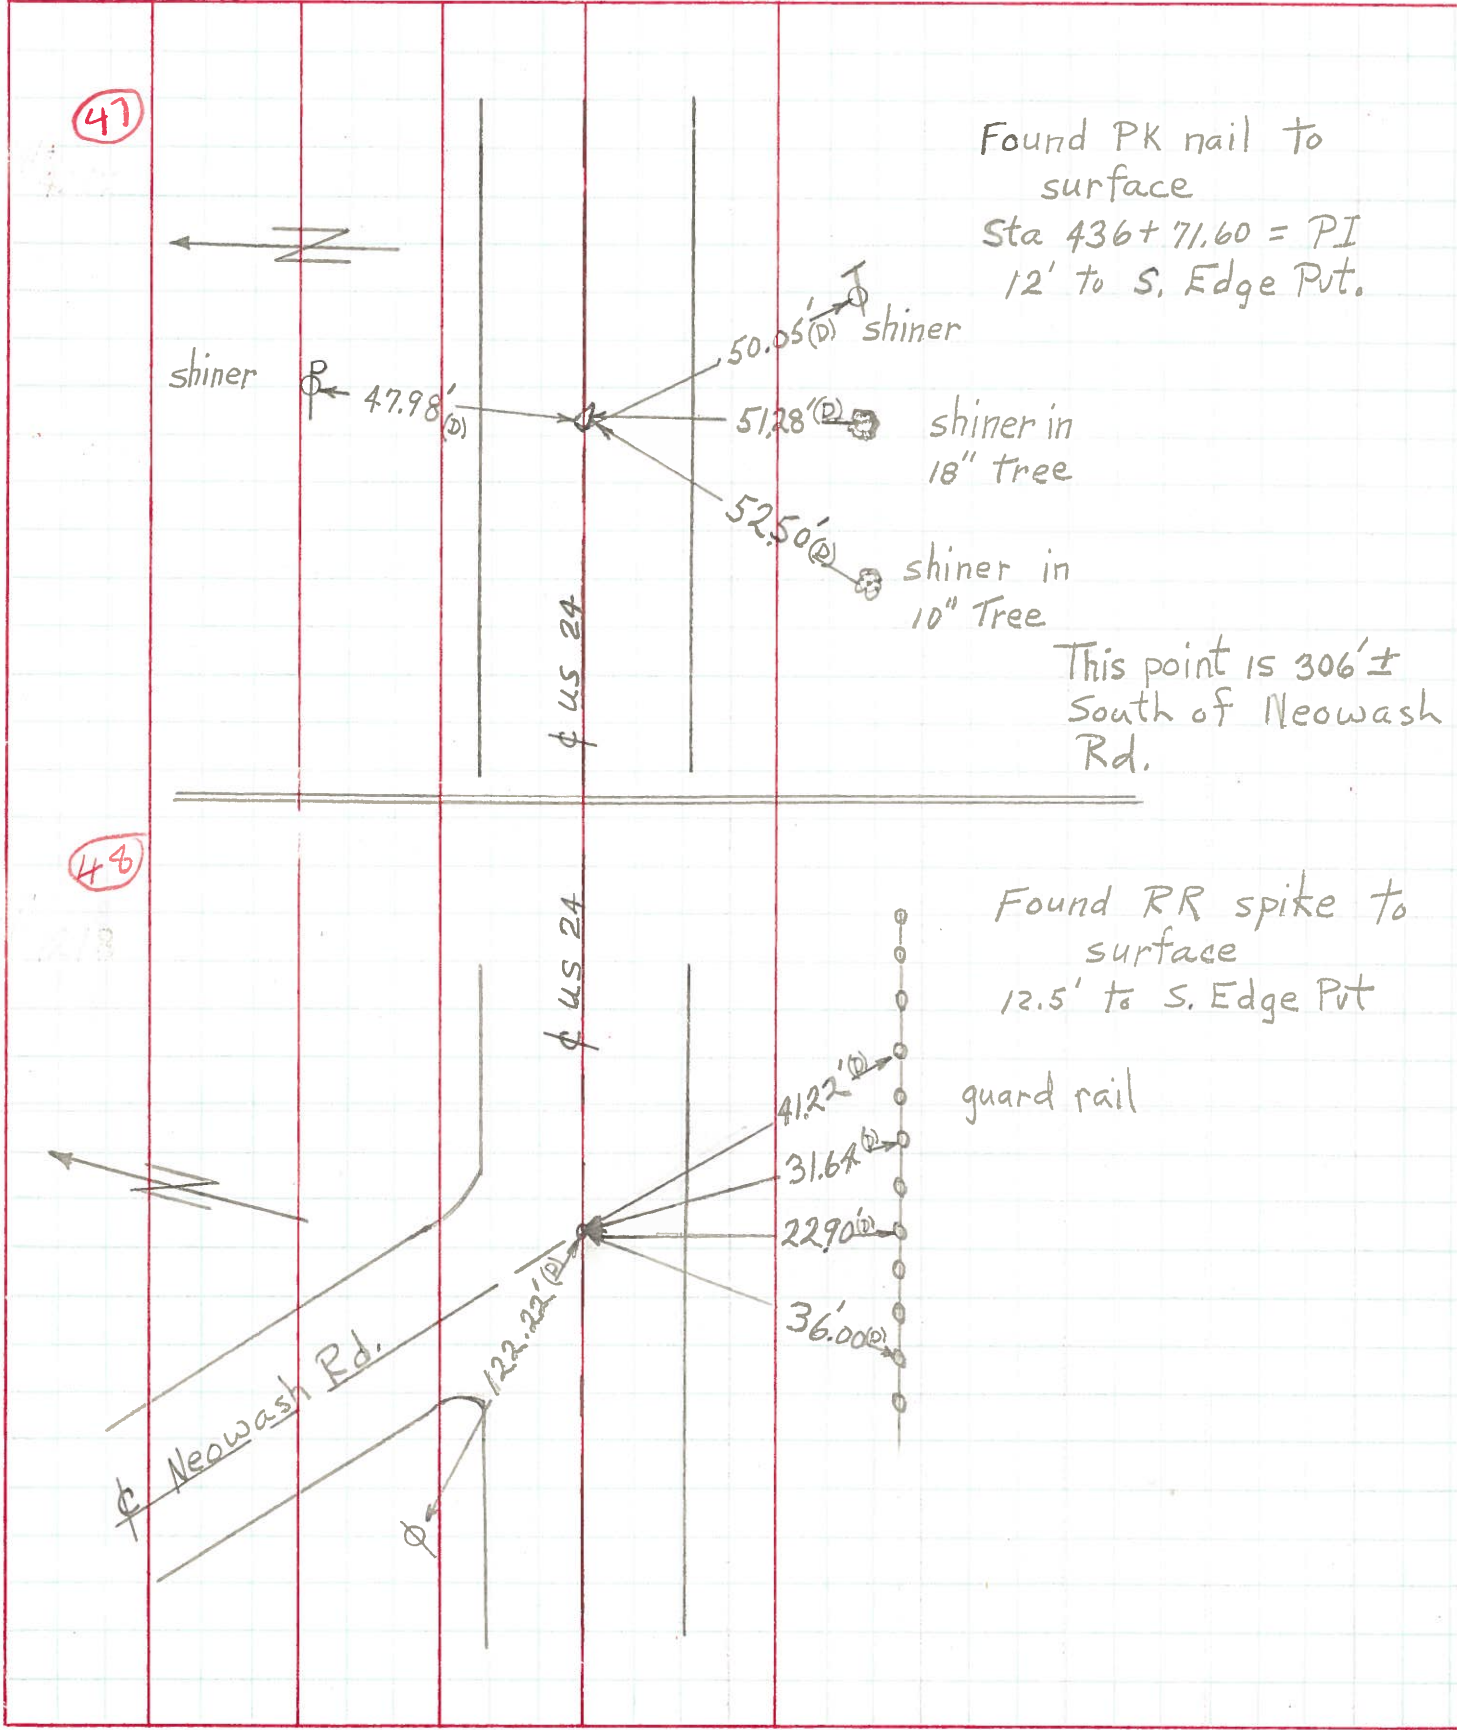 47
Found PK nail to
surface
Sta 436+71.60 = PI
12' to S. Edge Pvt.
N
50.05'(D) shiner
shiner
P
47.98'(D)
51.28'(D) shiner in
18" tree
52.50'(D)
shiner in
10" Tree
¢ US 24
This point is 306'±
South of Neowash
Rd.
48
¢ US 24
Found RR spike to
surface
12.5' to S. Edge Pvt
41.22'(D)
guard rail
31.64'(D)
N
22.90'(D)
122.22'(D)
36.00'(D)
¢ Neowash Rd.